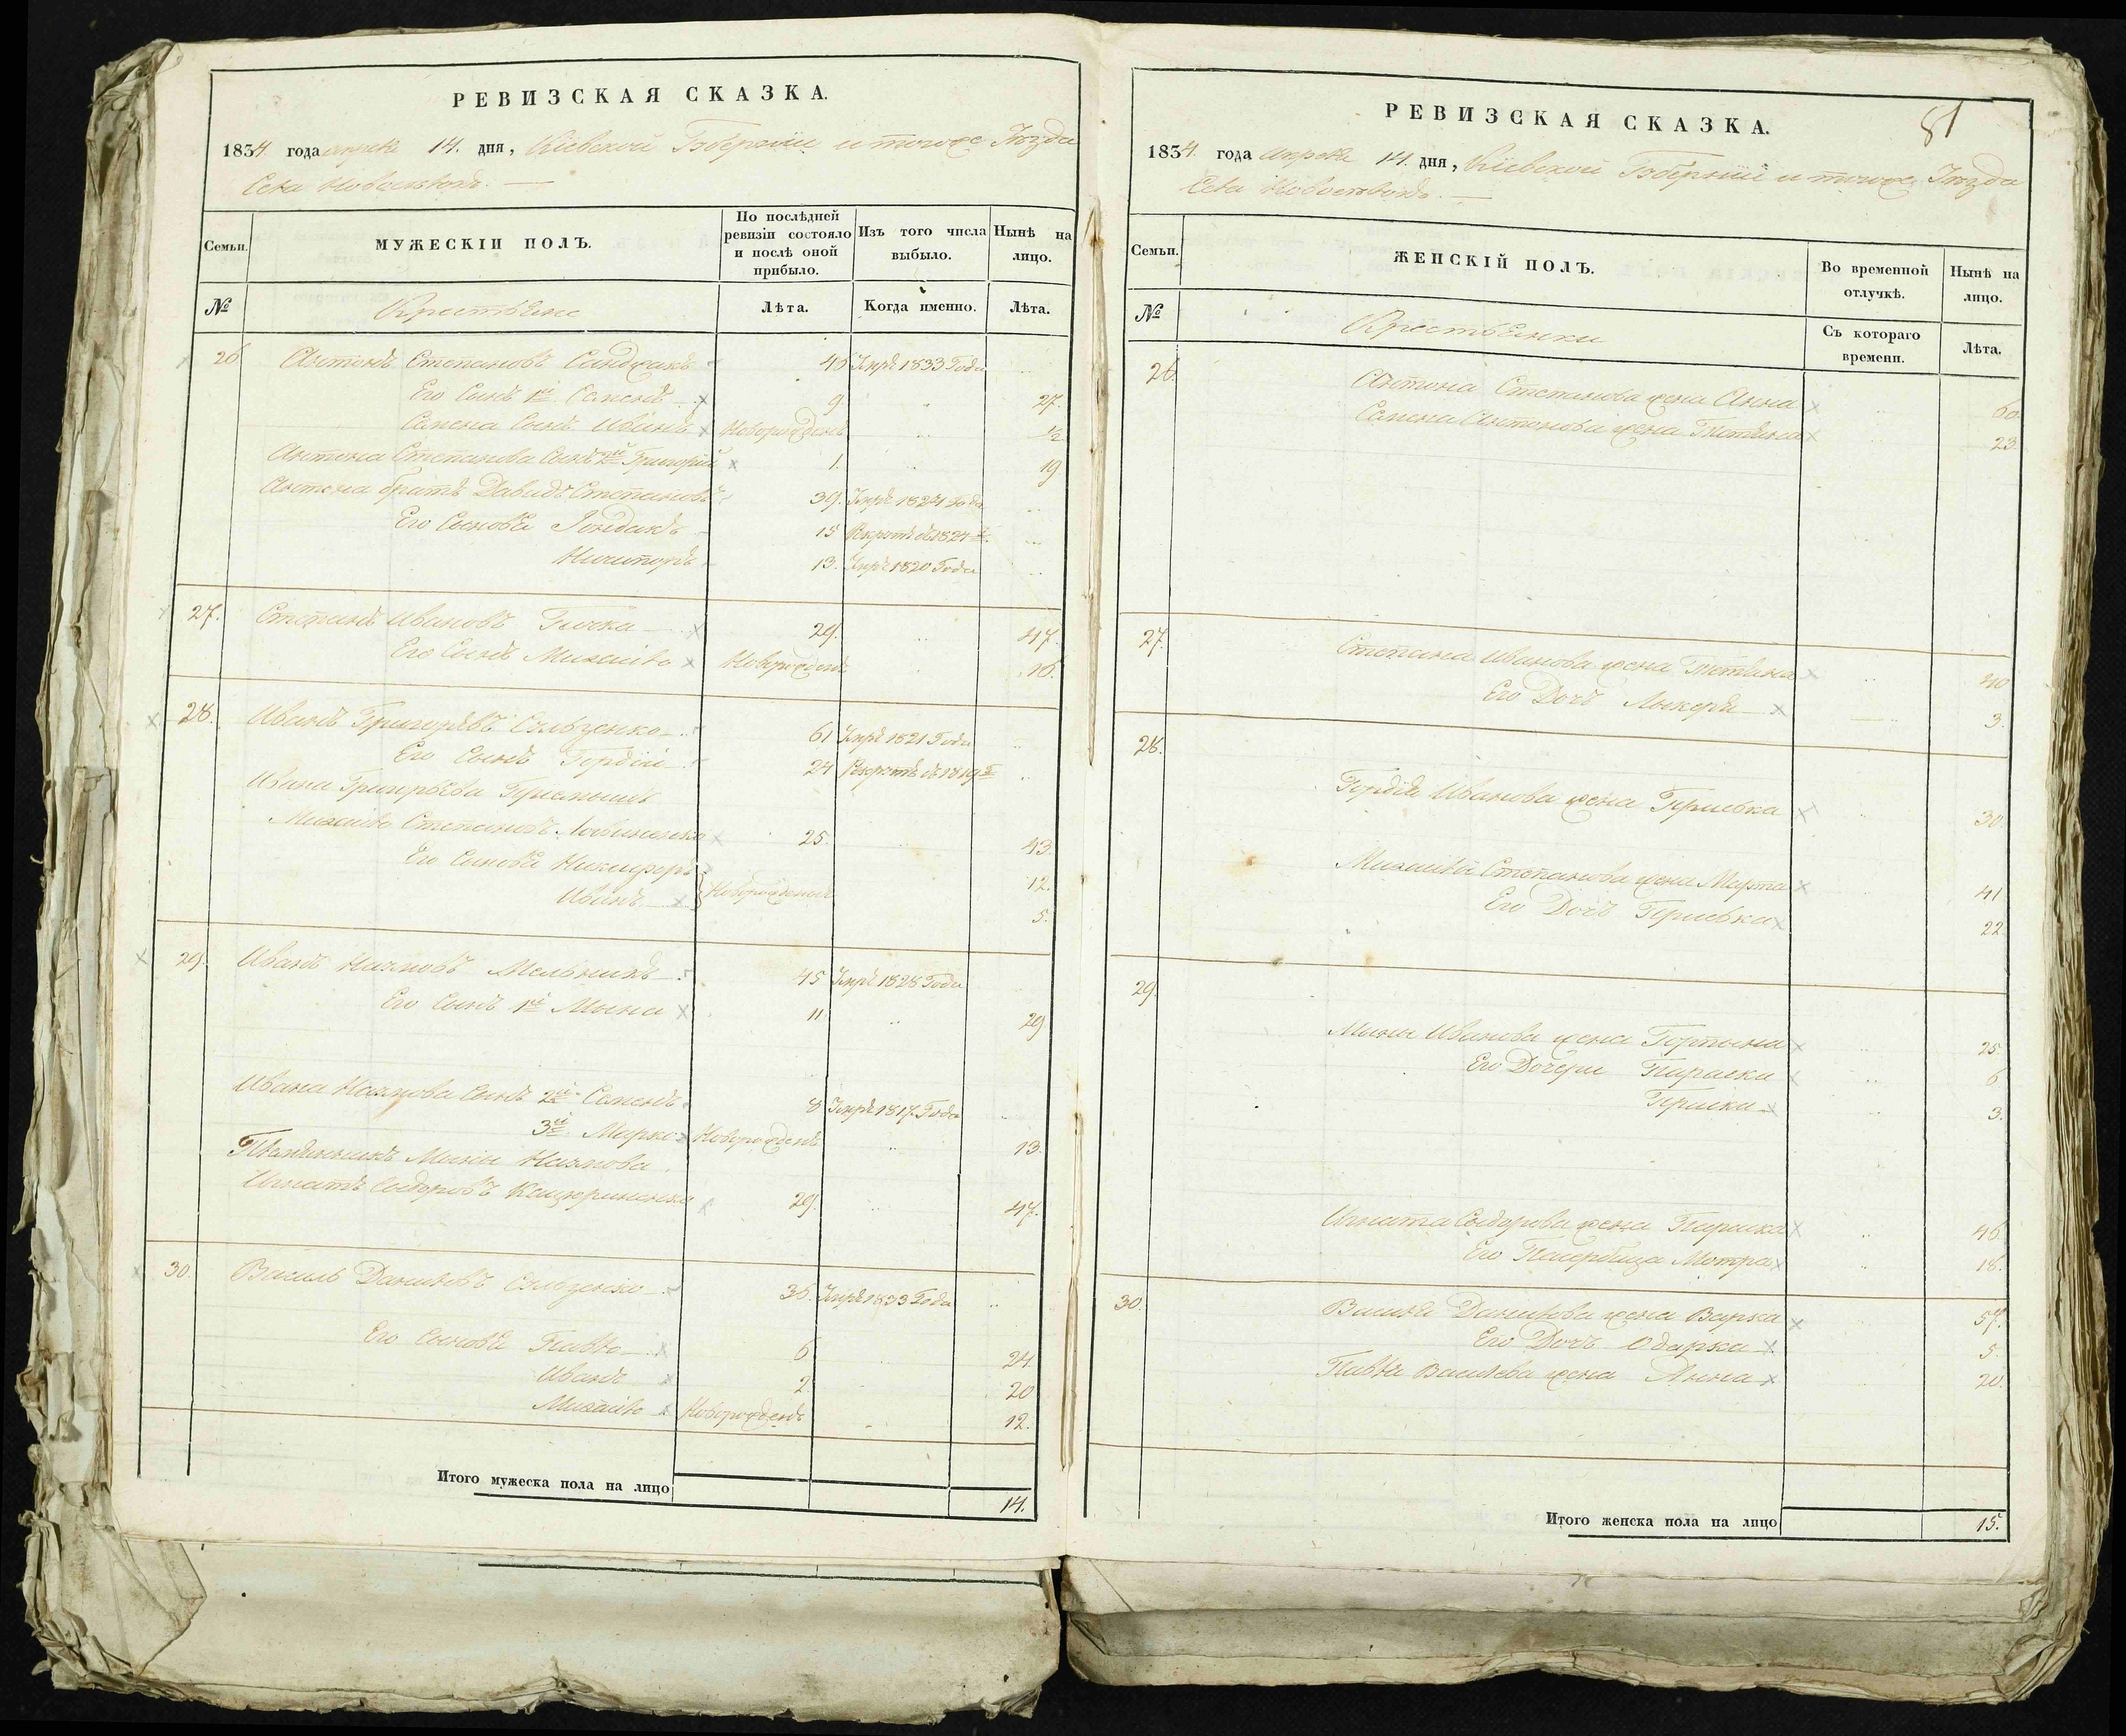 РЕВИЗСКАЯ СКАЗКА.
1834 года апреля 14. дня, Кіевской Губерніи и тогоже Уѣзда
Села
Семьи.
МУЖЕСКІЙ ПОЛЪ.
По послѣдней ревизіи состояло и послѣ оной прибыло.
Изъ того числа выбыло.
Нынѣ на лицо.
№
Крестьяне
Лѣта.
Когда именно.
Лѣта.
26 Антонъ Степановъ 46 Умре 1833 Года
Его Сынъ 1й Семенъ 9 27.
Семена Сынъ Иванъ Новорожденъ 1/2
Антона Степанова Сынъ 2й Григорій 1. 19
Антона братъ Давидъ Степановъ 39. Умре 1824 Года
Его Сыновья 15 1824
13. Умре 1820 Года
27. Степанъ Ивановъ 29. 47.
Его Сынъ Михайло Новорожденъ 16.
28. Иванъ Григорьевъ 61 Умре 1821 Года
Его Сынъ Гордій 24 1819
Ивана Григорьева Пріемышъ
Михайло Степановъ 25. 43.
Его Сыновья Никифоръ 12.
Иванъ Новорожденные 5.
29. Иванъ Мельникъ 45 Умре 1828 Года
Его Сынъ 1й Мина 11 29
Ивана Сынъ 2й Семенъ 8 Умре 1817. Года
3й Марко Новорожденъ 13.
Племянникъ
Игнатъ Сыдоровъ 29. 47.
30. Василь Даниловъ 36. Умре 1833 Года
Его Сыновья Павло 6 24
Иванъ 2. 20
Михайло Новорожденъ 12.
Итого мужеска пола на лицо 14.
81
РЕВИЗСКАЯ СКАЗКА.
1834. года апреля 14. дня, Кіевской Губерніи и тогоже Уѣзда
Села
Семьи.
ЖЕНСКІЙ ПОЛЪ.
Во временной отлучкѣ.
Нынѣ на лицо.
№
Крестьянки
Съ котораго времени.
Лѣта.
26. Антона Степанова жена Анна 60
Семена Антонова жена Тетяна 23.
27. Степана Иванова жена Тетяна 40
Его Дочь 3.
28.
Гордія Иванова жена 30.
Михайлы Степанова жена Марта 41
Его Дочь 22
29.
Мины Иванова жена Горпина 25.
Его Дочери Параска 6
Приска 3.
Игната Сыдорова жена Параска 46
Его Мотра 18.
30. Василя Данилова жена Варка 57.
Его Дочь Одарка 5
Павла Василева жена Анна 20.
Итого женска пола на лицо 15.